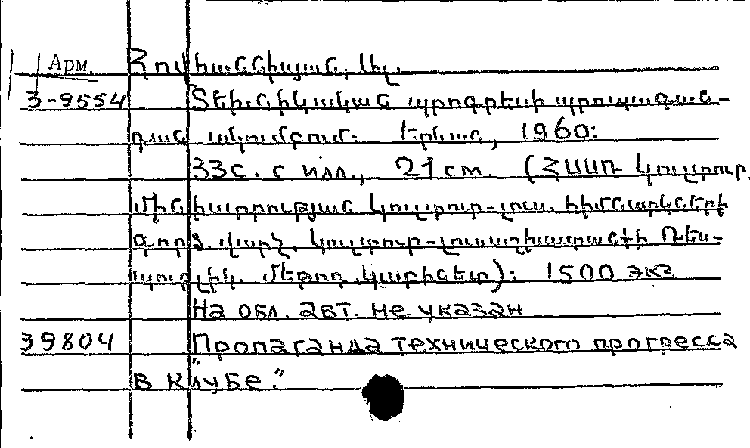 Арм. Հովհաննիսյան, Ալ.
3-9554 Տեխնիկական պրոգրեսի պրոպագան-
դան ակումբում: Երևան, 1960:
33с. с илл., 21 см. (ՀՍՍՌ կուլտուր.
մինիստրության կուլտուր-լուս. հիմնարկների
գործ. վարչ. կուլտուր-լուսաշխատանքի Ռես-
պուբլիկ. մեթոդ. կաբինետ): 1500 экз
На обл. авт. не указан
39804 Пропаганда технического прогресса
в клубе."